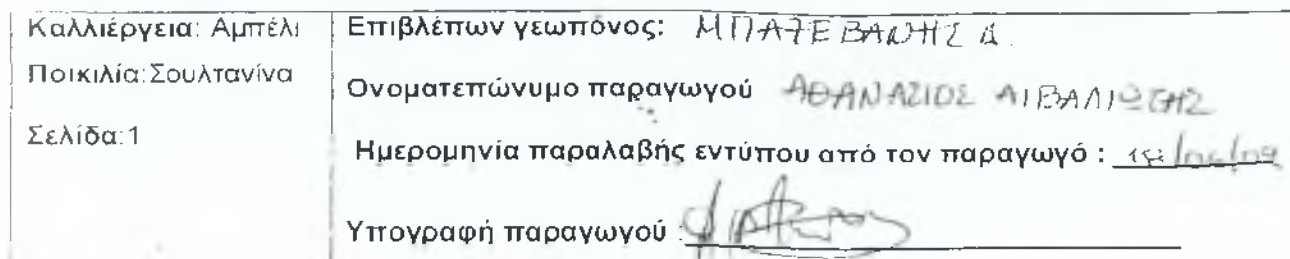 Καλλιέργεια: Αμπέλι
Ποικιλία:Σουλτανίνα
Σελίδα:1
Επιβλέπων γεωπόνος: ΜΠΑΤΕΒΑΝΗΣ Δ.
Ονοματεπώνυμο παραγωγού ΑΘΑΝΑΣΙΟΣ ΑΙΒΑΛΙΩΤΗΣ
Ημερομηνία παραλαβής εντύπου από τον παραγωγό :
Υπογραφή παραγωγού :